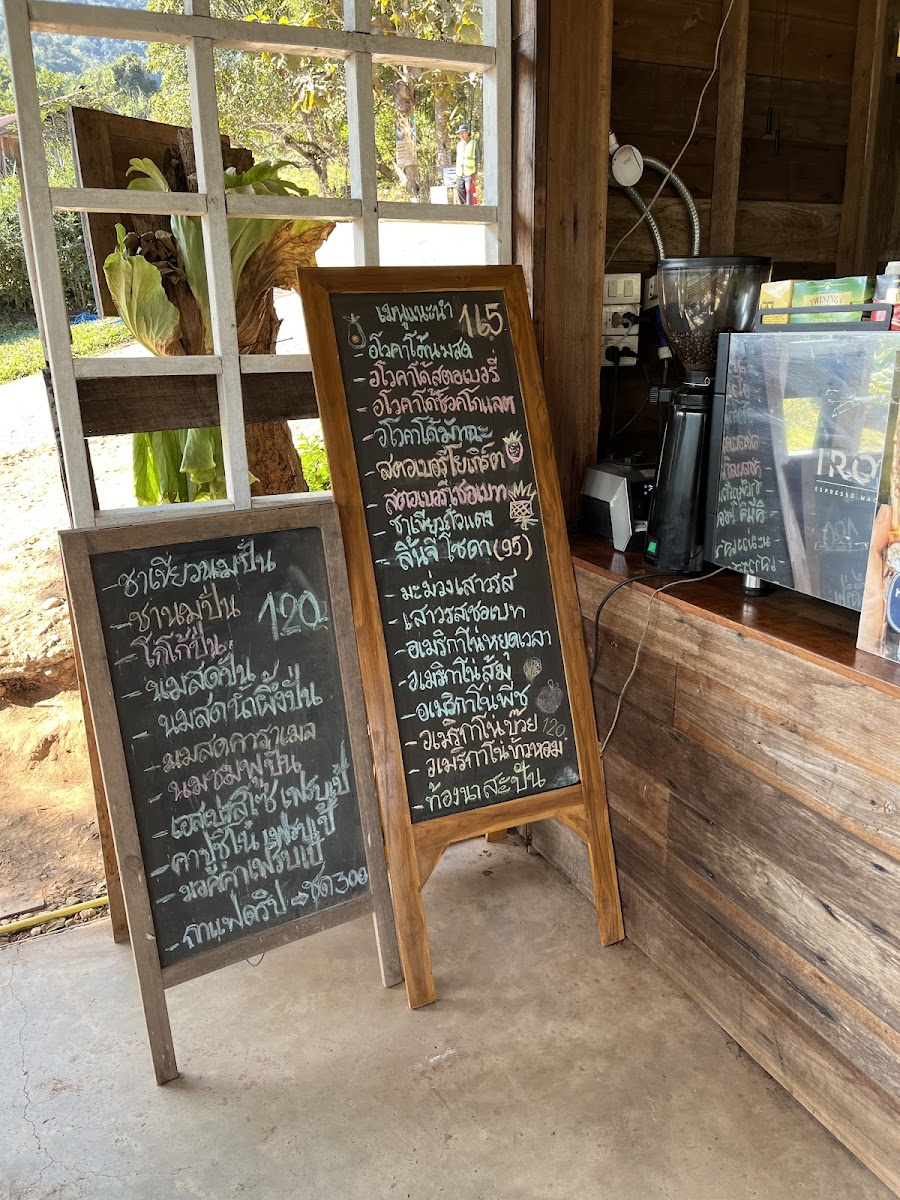 -ชาเขียวนมปั่น
-ชานมปั่น
120.
-โกโก้ปั่น
-นมสดปั่น
-นมสดน้ำผึ้งปั่น
-นมสดคาราเมล
-นมชมพูปั่น
-เอสเปรสโซ่ เฟรปเป้
-คาปูชิโน่ เฟรบเป้
-มอคค่าเฟรบเป้
-กาแฟดริป →ชุด300
เมนูแนะนำ 165
-อโวคาโด้นมสด
-อโวคาโด้สตอเบอรี่
-อโวคาโด้ช็อคโกแลต
-อโวคาโด้มัทฉะ
-สตอเบอรี่โยเกิร์ต
-สตอเบอรี่เชอเบท
-ชาเขียวถั่วแดง
-ลิ้นจี่โซดา(95)
-มะม่วงเสาวรส
-เสาวรสเชอเบท
-อเมริกาโน่หยุดเวลา
-อเมริกาโน่ส้ม
-อเมริกาโน่พีช
-อเมริกาโน่บ๊วย 120.
-อเมริกาโน่น้ำหอม
-ท้องนาสะปัน
TWININGS
ESPRESSO